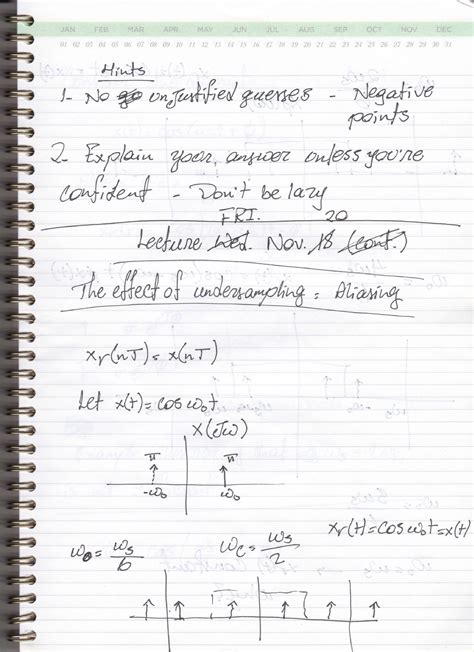 JAN FEB MAR APR MAY JUN JUL AUG SEP OCT NOV DEC
01 02 03 04 05 06 07 08 09 10 11 12 13 14 15 16 17 18 19 20 21 22 23 24 25 26 27 28 29 30 31
Hints
1- No go unjustified guesses - Negative
points
2- Explain your answer unless you're
confident - Don't be lazy
FRI. 20
Lecture Wed. Nov. 18 (cont.)
The effect of undersampling: Aliasing
xr(nT) = x(nT)
Let x(t) = cos ω₀t
X(jω)
π π
-ω₀ ω₀
xr(t) = cos ω₀t = x(t)
ω₀ = ωs/6 ωc = ωs/2